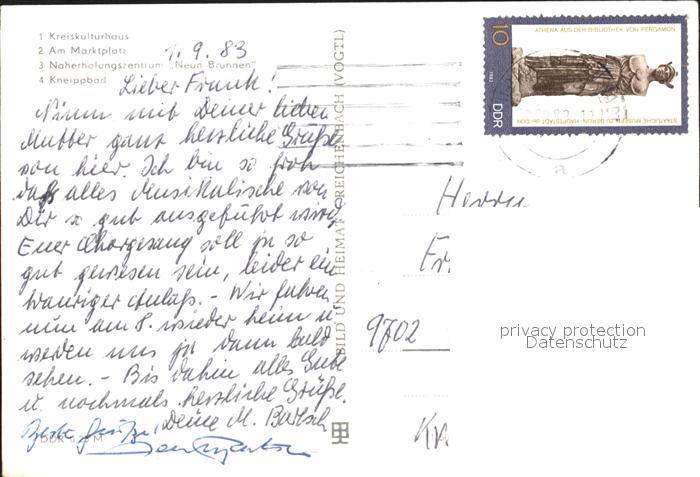 1 Kreiskulturhaus
2 Am Marktplatz
3 Naherholungszentrum „Neun Brunnen"
4 Kneippbad
1.9.83
Lieber Frank!
Nimm mit Deiner lieben
Mutter ganz herzliche Grüße
von hier. Ich bin so froh
daß alles Musikalische von
Dir so gut ausgeführt wird.
Euer Chorgesang soll ja so
gut gewesen sein, leider ein
trauriger Anlaß. - Wir fahren
nun am 8. wieder heim u.
werden uns ja dann bald
sehen. - Bis dahin alles Gute
u. nochmals herzliche Grüße.
Deine M. Bartsch
Beste Grüße!
DDR 0,20 M
BILD UND HEIMAT REICHENBACH (VOGTL)
ATHENA AUS DER BIBLIOTHEK VON PERGAMON
10
1982
DDR
STAATLICHE MUSEEN ZU BERLIN, HAUPTSTADT der DDR
a
Herrn
Fr
9702
privacy protection
Datenschutz